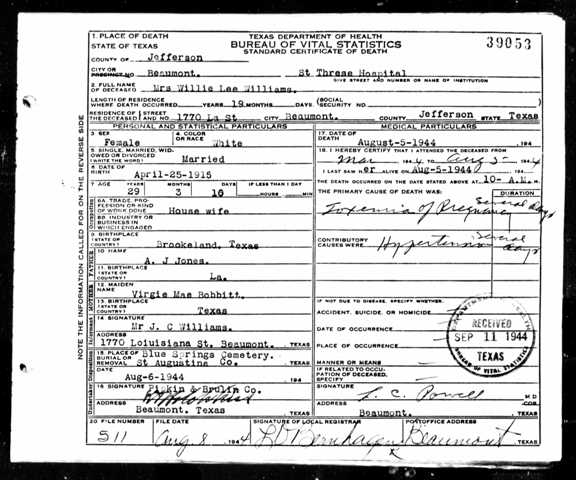 1. PLACE OF DEATH
STATE OF TEXAS
TEXAS DEPARTMENT OF HEALTH
BUREAU OF VITAL STATISTICS
STANDARD CERTIFICATE OF DEATH
39053
COUNTY OF Jefferson
CITY OR PRECINCT NO. Beaumont. St Threse Hospital
GIVE STREET AND NUMBER OR NAME OF INSTITUTION
2. FULL NAME OF DECEASED Mrs Willie Lee Williams.
LENGTH OF RESIDENCE WHERE DEATH OCCURRED YEARS 19 MONTHS DAYS (SOCIAL SECURITY NO.
RESIDENCE OF THE DECEASED STREET AND NO. 1770 La St CITY Beaumont. COUNTY Jefferson STATE Texas
PERSONAL AND STATISTICAL PARTICULARS
3 SEX Female
4. COLOR OR RACE White
5. SINGLE, MARRIED, WIDOWED OR DIVORCED (WRITE THE WORD) Married
6 DATE OF BIRTH April-25-1915
7 AGE YEARS 29 MONTHS 3 DAYS 10 IF LESS THAN 1 DAY HOURS MIN
8A. TRADE, PROFESSION OR KIND OF WORK DONE House wife
8B. INDUSTRY OR BUSINESS IN WHICH ENGAGED
9 BIRTHPLACE (STATE OR COUNTRY) Brookeland, Texas
10 NAME A. J Jones.
11 BIRTHPLACE (STATE OR COUNTRY) La.
12. MAIDEN NAME Virgie Mae Bobbitt.
13. BIRTHPLACE (STATE OR COUNTRY) Texas
14 SIGNATURE Mr J. C Williams.
ADDRESS 1770 Loiuisiana St. Beaumont. TEXAS
15 PLACE OF BURIAL OR REMOVAL Blue Springs Cemetery. St Augustine Co. TEXAS
DATE Aug-6-1944 194
16 SIGNATURE Pipkin & Brulin Co.
ADDRESS Beaumont. Texas TEXAS
MEDICAL PARTICULARS
17. DATE OF DEATH August-5-1944 194
18. I HEREBY CERTIFY THAT I ATTENDED THE DECEASED FROM
Mar 1944 TO Aug 5 1944
I LAST SAW her ALIVE ON Aug-5-1944 194
THE DEATH OCCURRED ON THE DATE STATED ABOVE AT 10- A.M. M.
THE PRIMARY CAUSE OF DEATH WAS: DURATION
Toxemia of Pregnancy Several days
CONTRIBUTORY CAUSES WERE: Hypertension Several days
IF NOT DUE TO DISEASE, SPECIFY WHETHER:
ACCIDENT, SUICIDE, OR HOMICIDE
DATE OF OCCURRENCE
PLACE OF OCCURRENCE
MANNER OR MEANS
IF RELATED TO OCCUPATION OF DECEASED, SPECIFY
SIGNATURE L. C. Powell M D
COR.
ADDRESS Beaumont. TEXAS
RECEIVED
SEP 11 1944
TEXAS
BUREAU OF VITAL STATISTICS
20 FILE NUMBER 511
FILE DATE Aug 8 1944
SIGNATURE OF LOCAL REGISTRAR
POSTOFFICE ADDRESS Beaumont TEXAS
NOTE THE INFORMATION CALLED FOR ON THE REVERSE SIDE
Occupation
FATHER
MOTHER
Informant
Undertaker Disposition